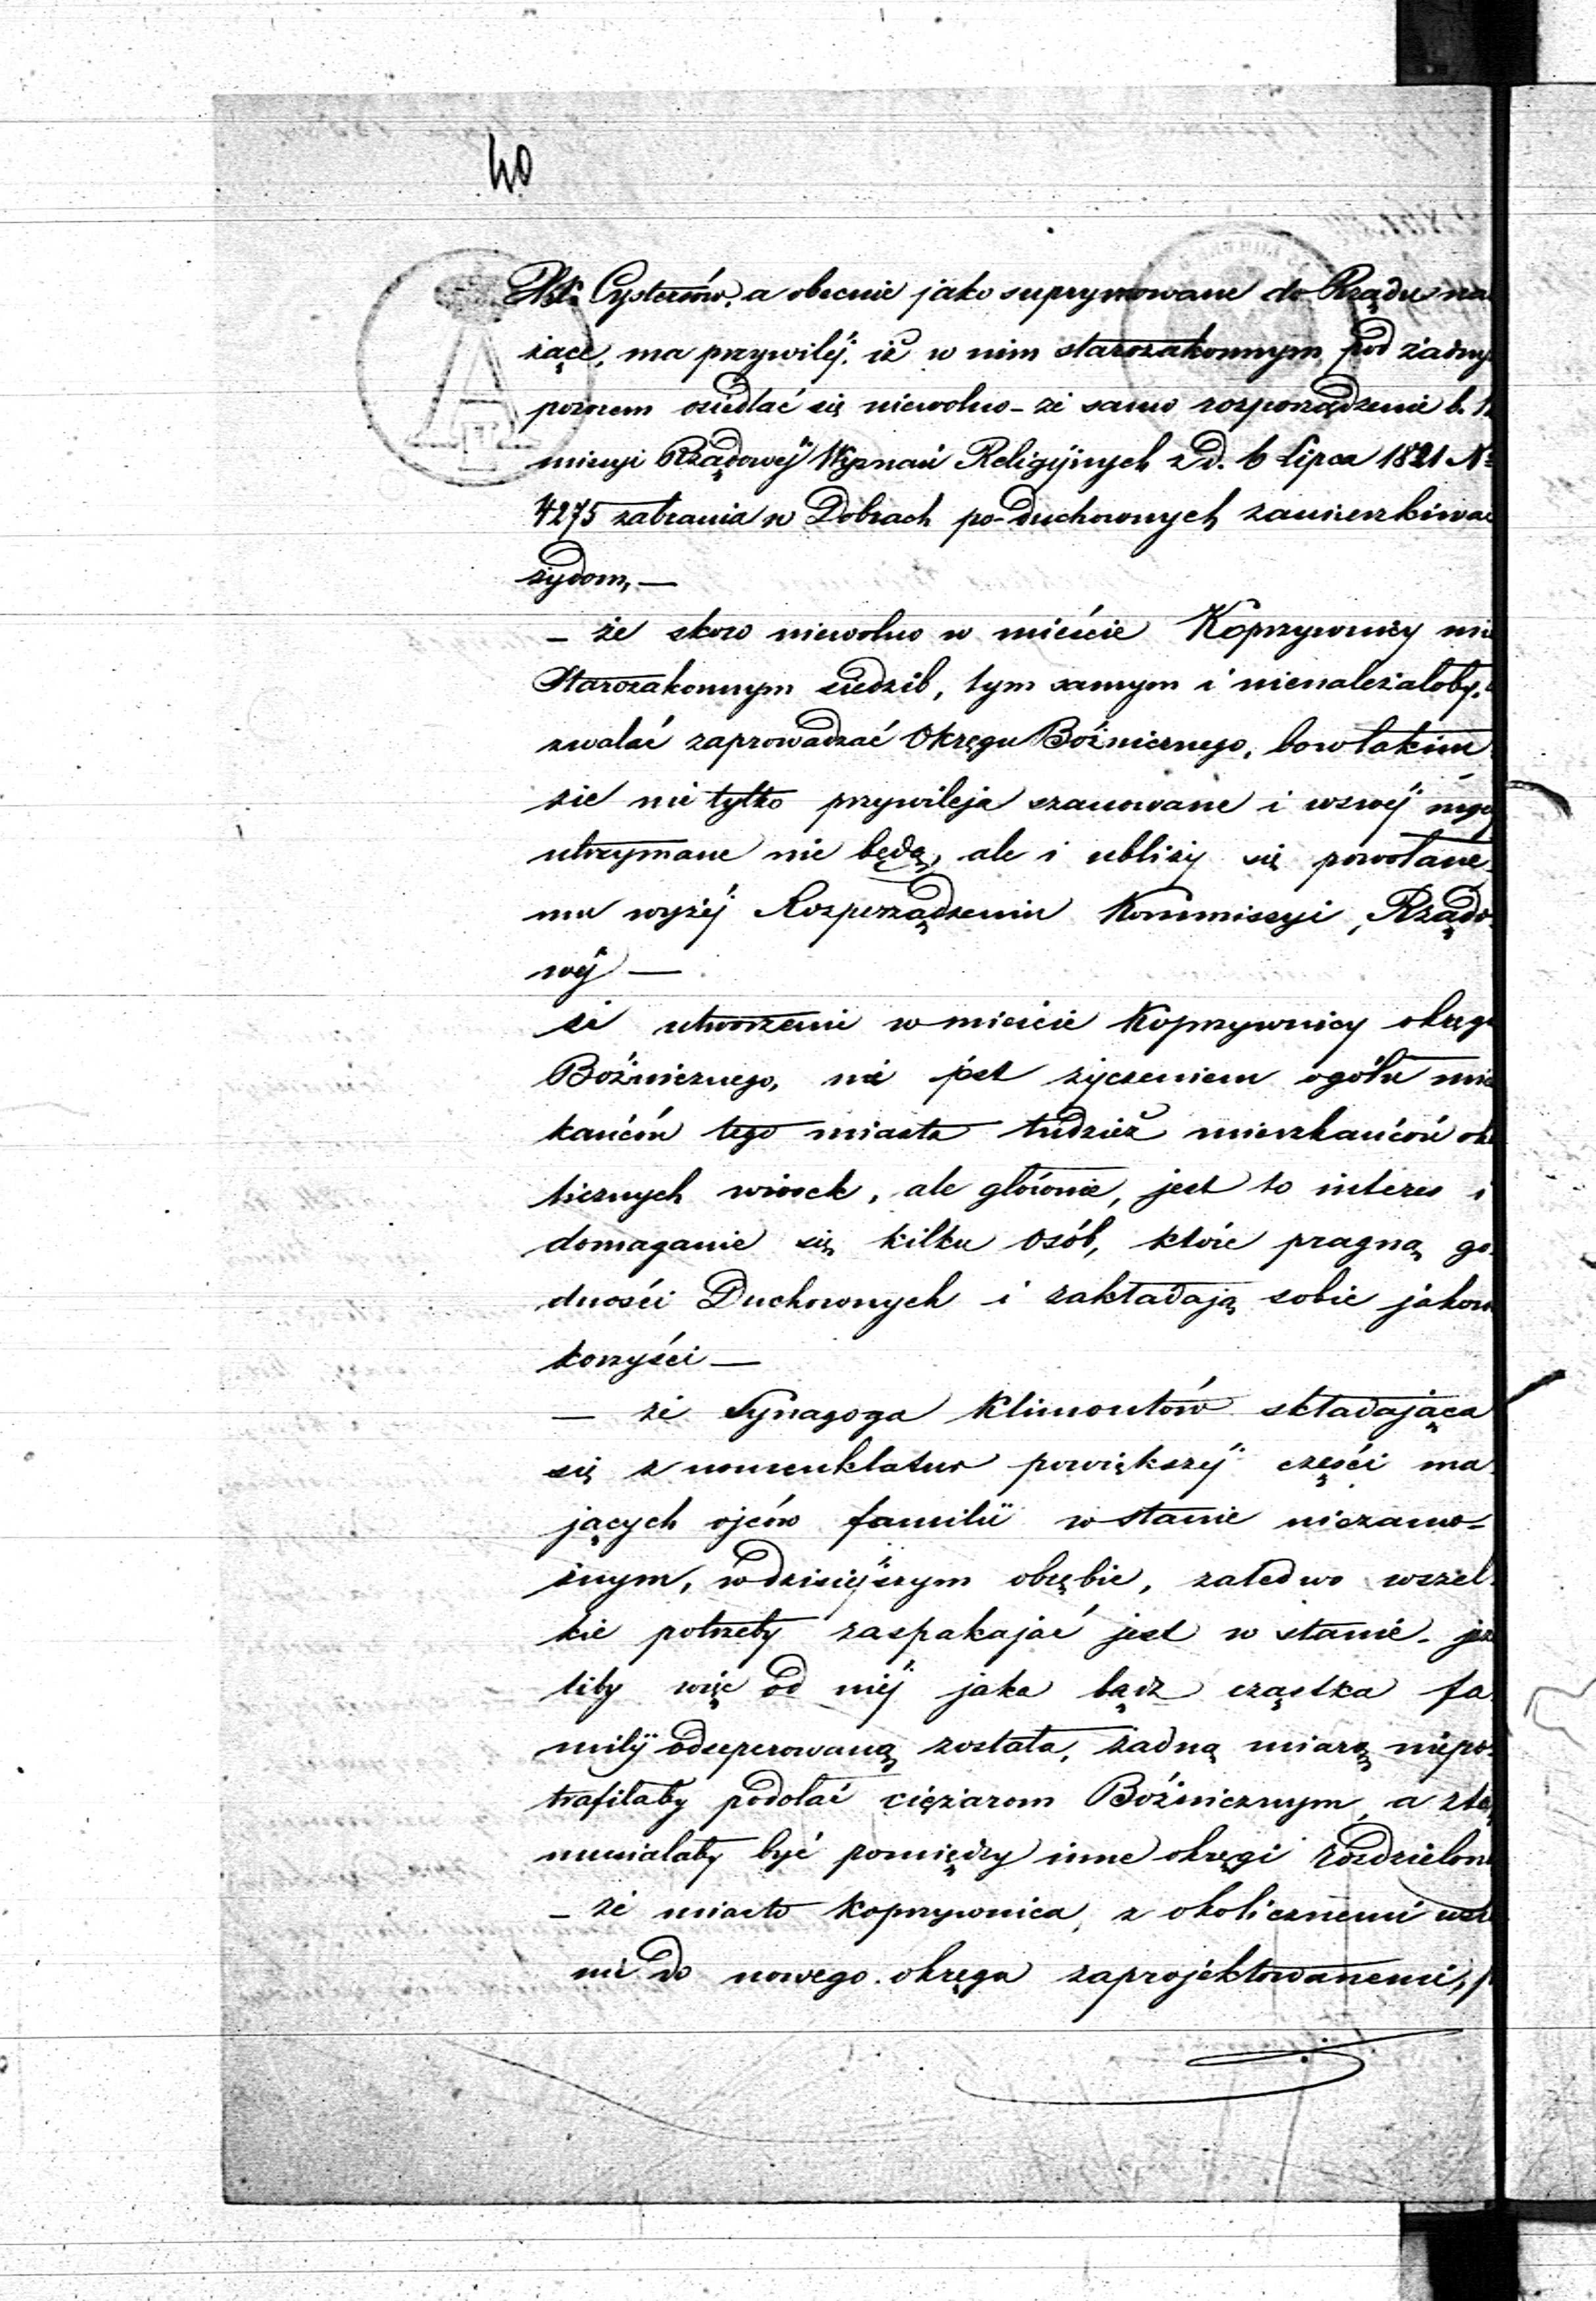 40
Cystersów, a obecnie jako suprymowane do Rządu na
żące, ma przywilej, iż w nim starozakonnym pod żadny
pozorem osiedlać się niewolno – że samo rozporządzenie b.
missyi Rządowéj Wyznań Religijnych z d. 6 Lipca 1821 No
4275 zabrania w Dobrach po-duchownych zamieszkiwać
żydom, —
– że skoro niewolno w mieście Koprzywnicy mie
Starozakonnym siedzib, tym samym i nienależałoby
zwalać zaprowadzać Okręgu Bóżnicznego, bo w takim
zie nie tylko przywileja szanowane i w swéj
utrzymane nie będą, ale i ubliży się powołane
mu wyżéj Rozporządzeniu Kommissyi Rządo-
wéj —
że utworzenie w mieście Koprzywnicy okręg
Bóżnicznego, nie jest życzeniem ogółu mie
kańców tego miasta tudzież mieszkańców oko
licznych wiosek, ale głównie, jest to interes i
domaganie się kilku osób, które pragną go-
dności Duchownych i zakładają sobie jakow
korzyści —
— że Synagoga Klimontów składająca
się z nomenklatur powiększéj części ma-
jących ojców familii w stanie niezamo-
żnym, w dzisiejszym obrębie, zaledwo wszel-
kie potrzeby zaspakajać jest w stanie – jeże
liby więc od niéj jaka bądź cząstka fa-
milij odseperowaną została, żadną miarą niepo-
trafiłaby podołać ciężarom Bóżnicznym, a ztąd
musiałaby być pomiędzy inne okręgi rozdzieloną
– że miasto Koprzywnica, z okolicznemi
mi do nowego okręgu zaprojektowanemi,